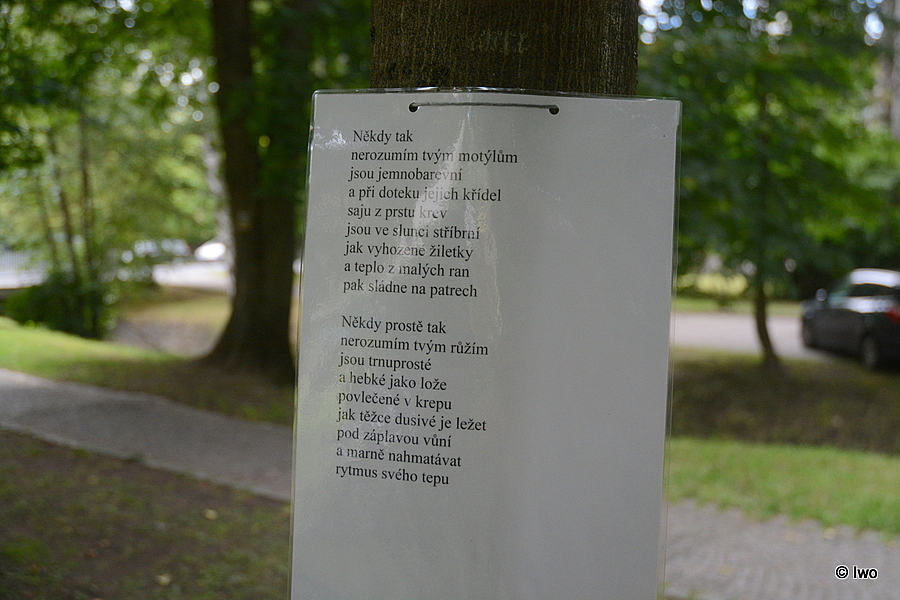 Někdy tak
nerozumím tvým motýlům
jsou jemnobarevní
a při doteku jejich křídel
saju z prstu krev
jsou ve slunci stříbrní
jak vyhozené žiletky
a teplo z malých ran
pak sládne na patrech
Někdy prostě tak
nerozumím tvým růžím
jsou trnuprosté
a hebké jako lože
povlečené v krepu
jak těžce dusivé je ležet
pod záplavou vůní
a marně nahmatávat
rytmus svého tepu
© Iwo